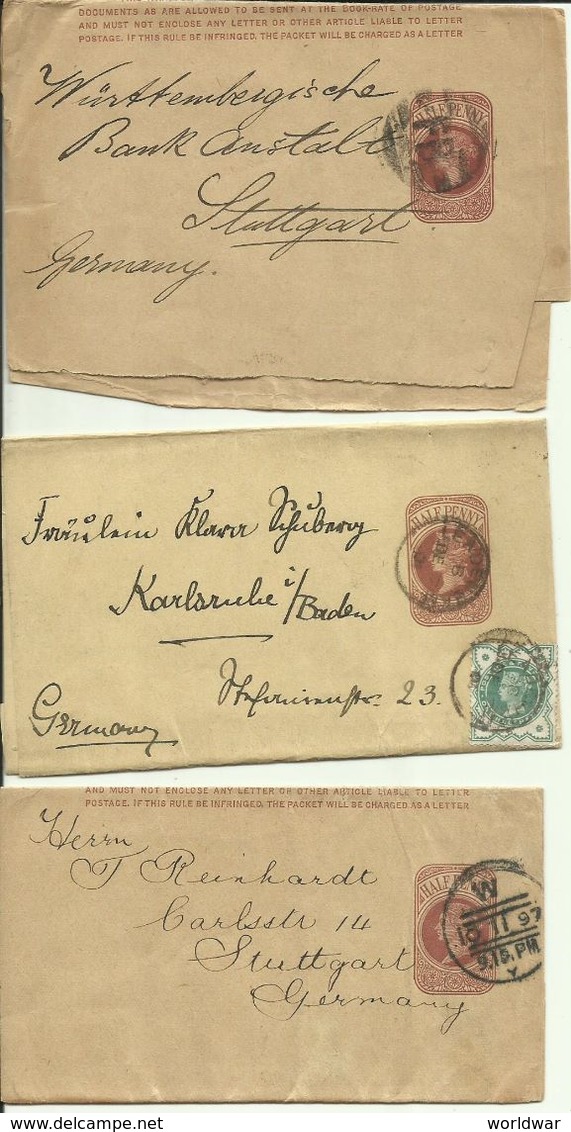 DOCUMENTS AS ARE ALLOWED TO BE SENT AT THE BOOK-RATE OF POSTAGE
AND MUST NOT ENCLOSE ANY LETTER OR OTHER ARTICLE LIABLE TO LETTER
POSTAGE. IF THIS RULE BE INFRINGED, THE PACKET WILL BE CHARGED AS A LETTER
HALFPENNY
Württembergische
Bank Anstalt
Stuttgart
Germany.
HALFPENNY
Fräulein Klara Schuberg
Karlsruhe i/Baden
Stefanienstr. 23.
Germany
AND MUST NOT ENCLOSE ANY LETTER OR OTHER ARTICLE LIABLE TO LETTER
POSTAGE. IF THIS RULE BE INFRINGED, THE PACKET WILL BE CHARGED AS A LETTER
Herrn
T Reinhardt
Carlsstr 14
Stuttgart
Germany
W
10 11 97
9.15.PM
Y
© worldwar